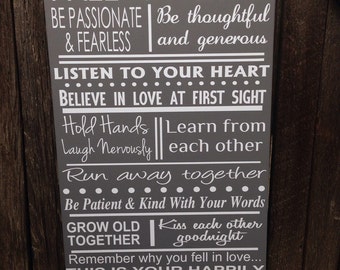 BE PASSIONATE
& FEARLESS
Be thoughtful
and generous
LISTEN TO YOUR HEART
BELIEVE IN LOVE AT FIRST SIGHT
Hold Hands
Laugh Nervously
Learn from
each other
Run away together
Be Patient & Kind With Your Words
GROW OLD
TOGETHER
Kiss each other
goodnight
Remember why you fell in love...
THIS IS YOUR HAPPILY